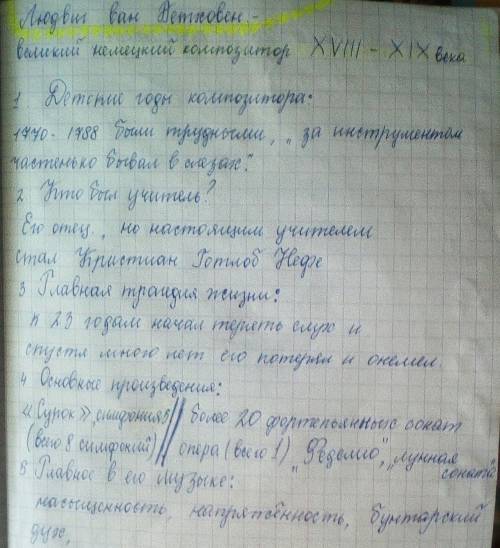 Людвиг ван Бетховен -
великий немецкий композитор XVIII - XIX века
1 Детские годы композитора:
1770 - 1788 были трудными, "за инструментом
частенько бывал в слезах".
2 Кто был учитель?
Его отец, но настоящим учителем
стал Кристиан Готлоб Нефе
3 Главная трагедия жизни:
к 23 годам начал терять слух и
спустя много лет его потерял и онемел.
4 Основные произведения:
«Сурок», симфония 5 // более 20 фортепьянных сонат
(всего 8 симфоний) // опера (всего 1) "Фиделио", "лунная
соната
5 Главное в его музыке:
насыщенность, напряжённость, бунтарский
дух,